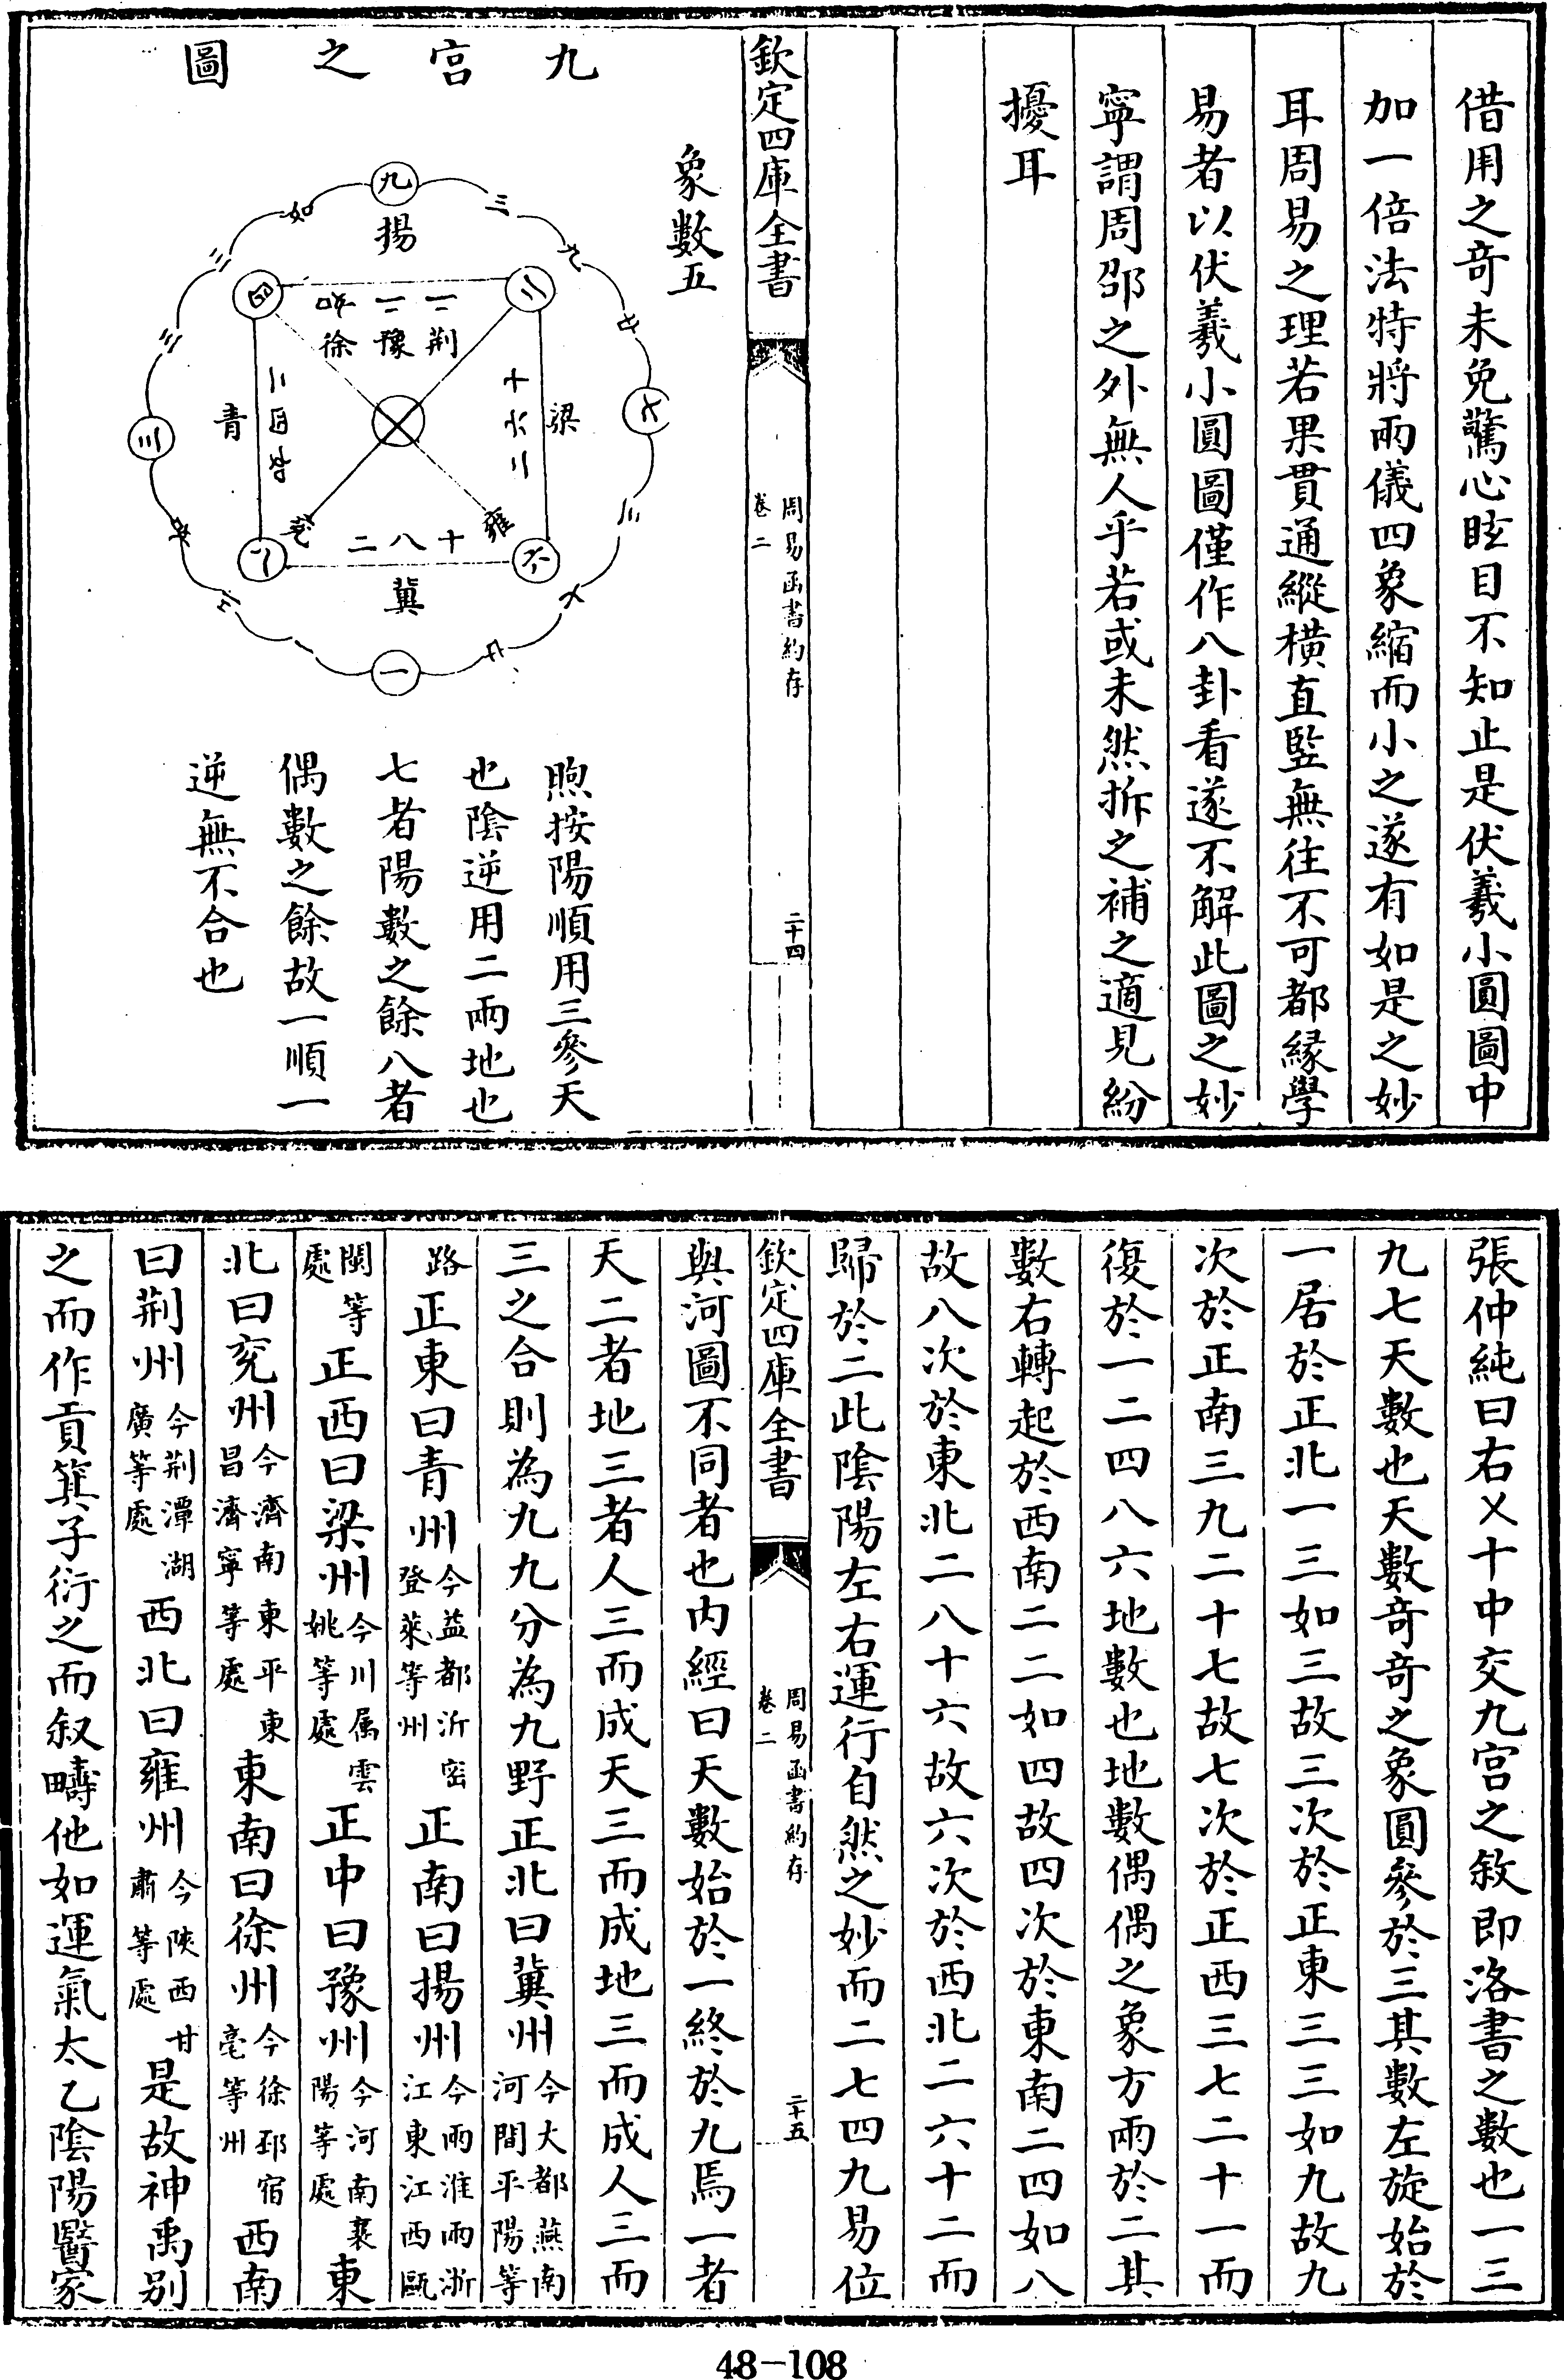 借用之竒未免驚心眩目不知止是伏羲小圓圖中
加一倍法特將兩儀四象縮而小之遂有如是之妙
耳周易之理若果貫通縱横直竪無往不可都縁學
易者以伏羲小圓圖僅作八卦看遂不解此圖之妙
寧謂周邵之外無人乎若或未然拆之補之適見紛
擾耳
欽定四庫全書
周易函書約存
卷二
二十四
象數五
九宮之圖
九
揚
三
九
二
七
荆
豫
徐
梁
十
六
二
二
四
如
青
三
四
八
兖
二八十
雍
六
冀
一
煦按陽順用三參天
也陰逆用二兩地也
七者陽數之餘八者
偶數之餘故一順一
逆無不合也
張仲純曰右㐅十中交九宮之敘即洛書之數也一三
九七天數也天數竒竒之象圓參於三其數左旋始於
一居於正北一三如三故三次於正東三三如九故九
次於正南三九二十七故七次於正西三七二十一而
復於一二四八六地數也地數偶偶之象方兩於二其
數右轉起於西南二二如四故四次於東南二四如八
故八次於東北二八十六故六次於西北二六十二而
歸於二此陰陽左右運行自然之妙而二七四九易位
欽定四庫全書
周易函書約存
卷二
二十五
與河圖不同者也内經曰天數始於一終於九焉一者
天二者地三者人三而成天三而成地三而成人三而
三之合則為九九分為九野正北曰冀州今大都燕南河間平陽等
路正東曰青州今益都沂密登萊等州正南曰揚州今兩淮兩浙江東江西甌
閩等處正西曰梁州今川属雲姚等處正中曰豫州今河南襄陽等處東
北曰兖州今濟南東平東昌濟寧等處東南曰徐州今徐邳宿亳等州西南
曰荆州今荆潭湖廣等處西北曰雍州今陜西甘肅等處是故神禹别
之而作貢箕子衍之而叙疇他如運氣太乙陰陽醫家
48-108